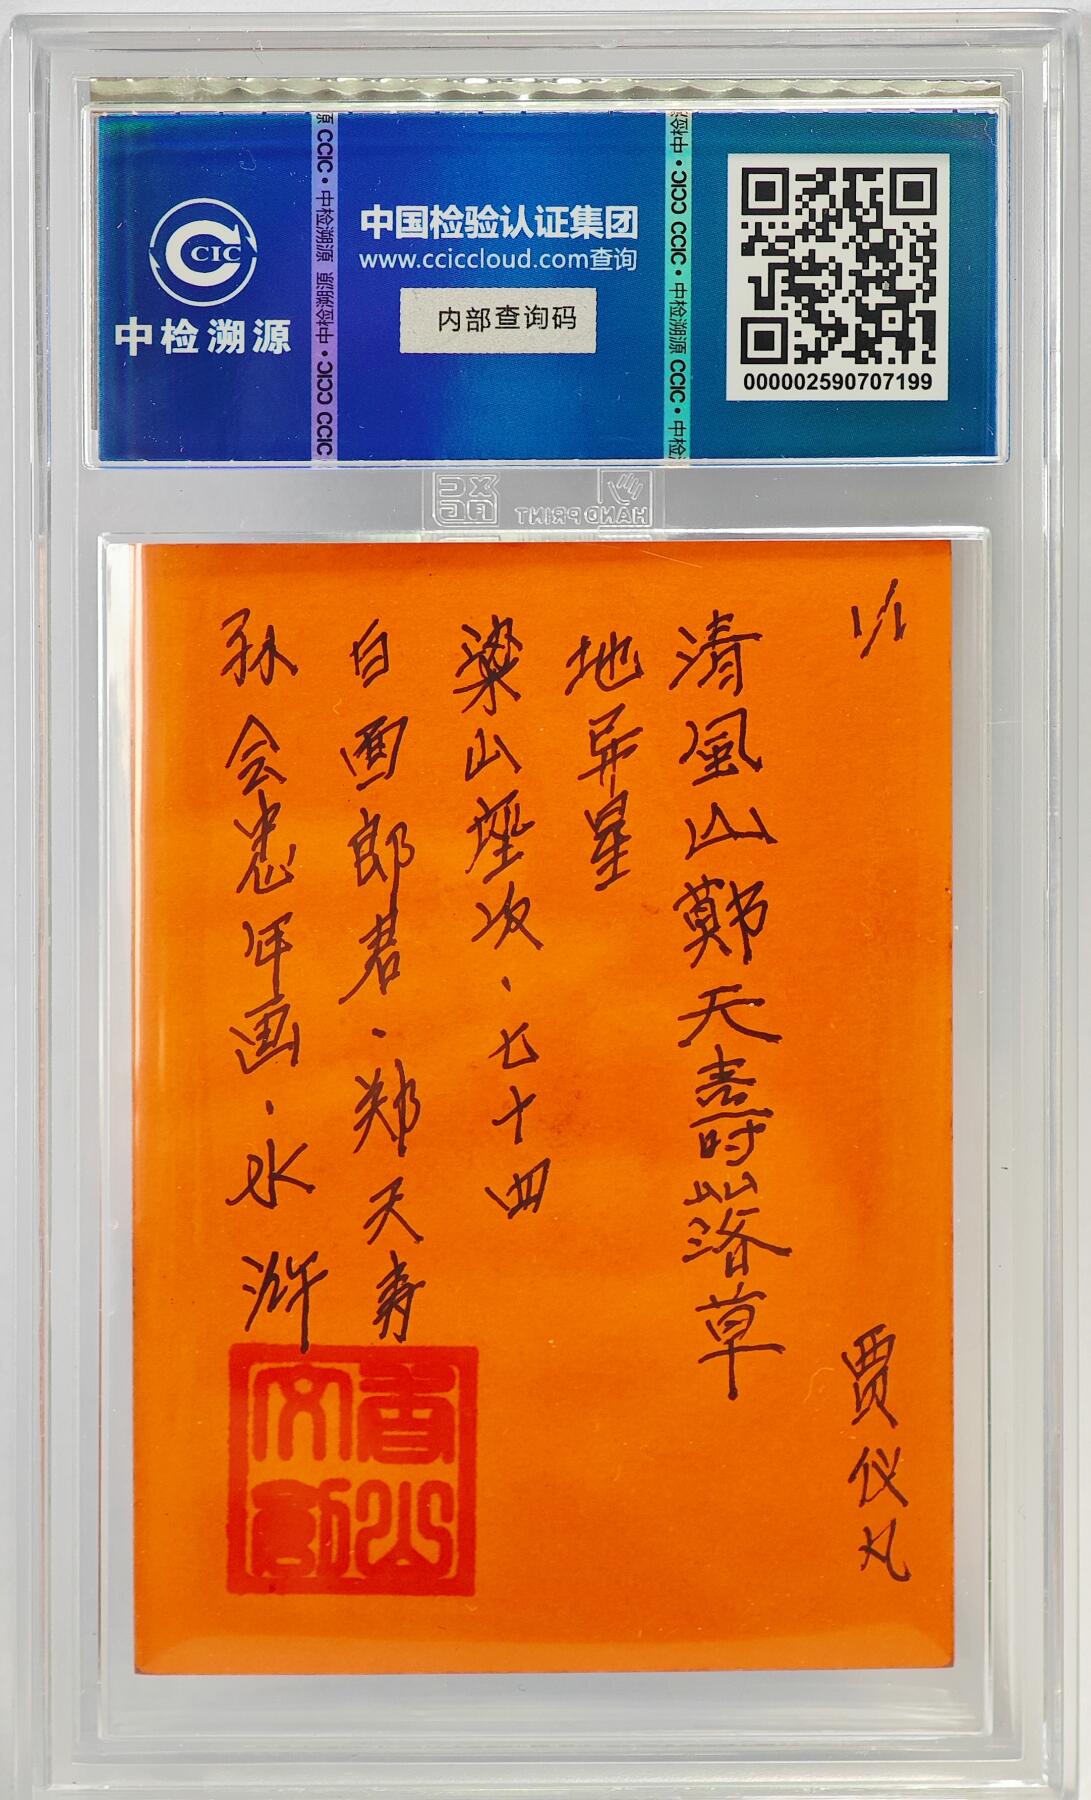 CCIC
中检溯源
源 CCIC • 中检溯源
中检溯源 • CCIC CCIC
中国检验认证集团
www.cciccloud.com查询
内部查询码
中检溯源 • CCIC
CCIC • 中检溯源 CCIC • 中检溯
000002590707199
HAND PRINT
1/1
贾仪丸
清風山鄭天壽落草
地异星
梁山座次·七十四
白面郎君·郑天寿
孙会忠年画·水浒